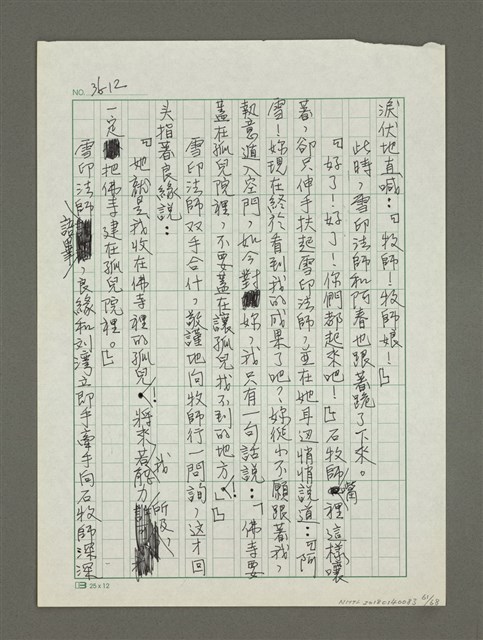 NO. 36-12
淚伏地直喊：「牧師！牧師娘！」
此時，雪印法師和阿春也跟著跪了下來。
「好了！好了！你們都起來吧！」石牧師嘴裡這樣嚷
著，卻只伸手扶起雪印法師，並在她耳边悄悄說道：「阿
雪！妳現在終於看到我的成果了吧？妳從小不願跟著我，
執意遁入空門，如今對妳，我只有一句話說：「佛寺要
蓋在孤兒院裡，不要蓋在讓孤兒找不到的地方！」
雪印法師双手合什，敬謹地向牧師行一問訊，這才回
头指著良緣說：
「她就是我收在佛寺裡的孤兒！將來若我能力所及，
一定把佛寺建在孤兒院裡。」
雪印法師話畢，良緣和刘灣立即手牽手向石牧師深深
25x12
61/68